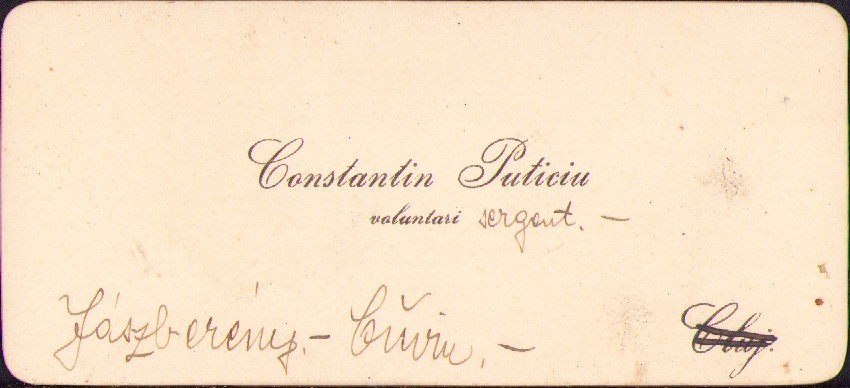 Constantin Puticiu
voluntari sergent. —
Jászberény. – Cluj.